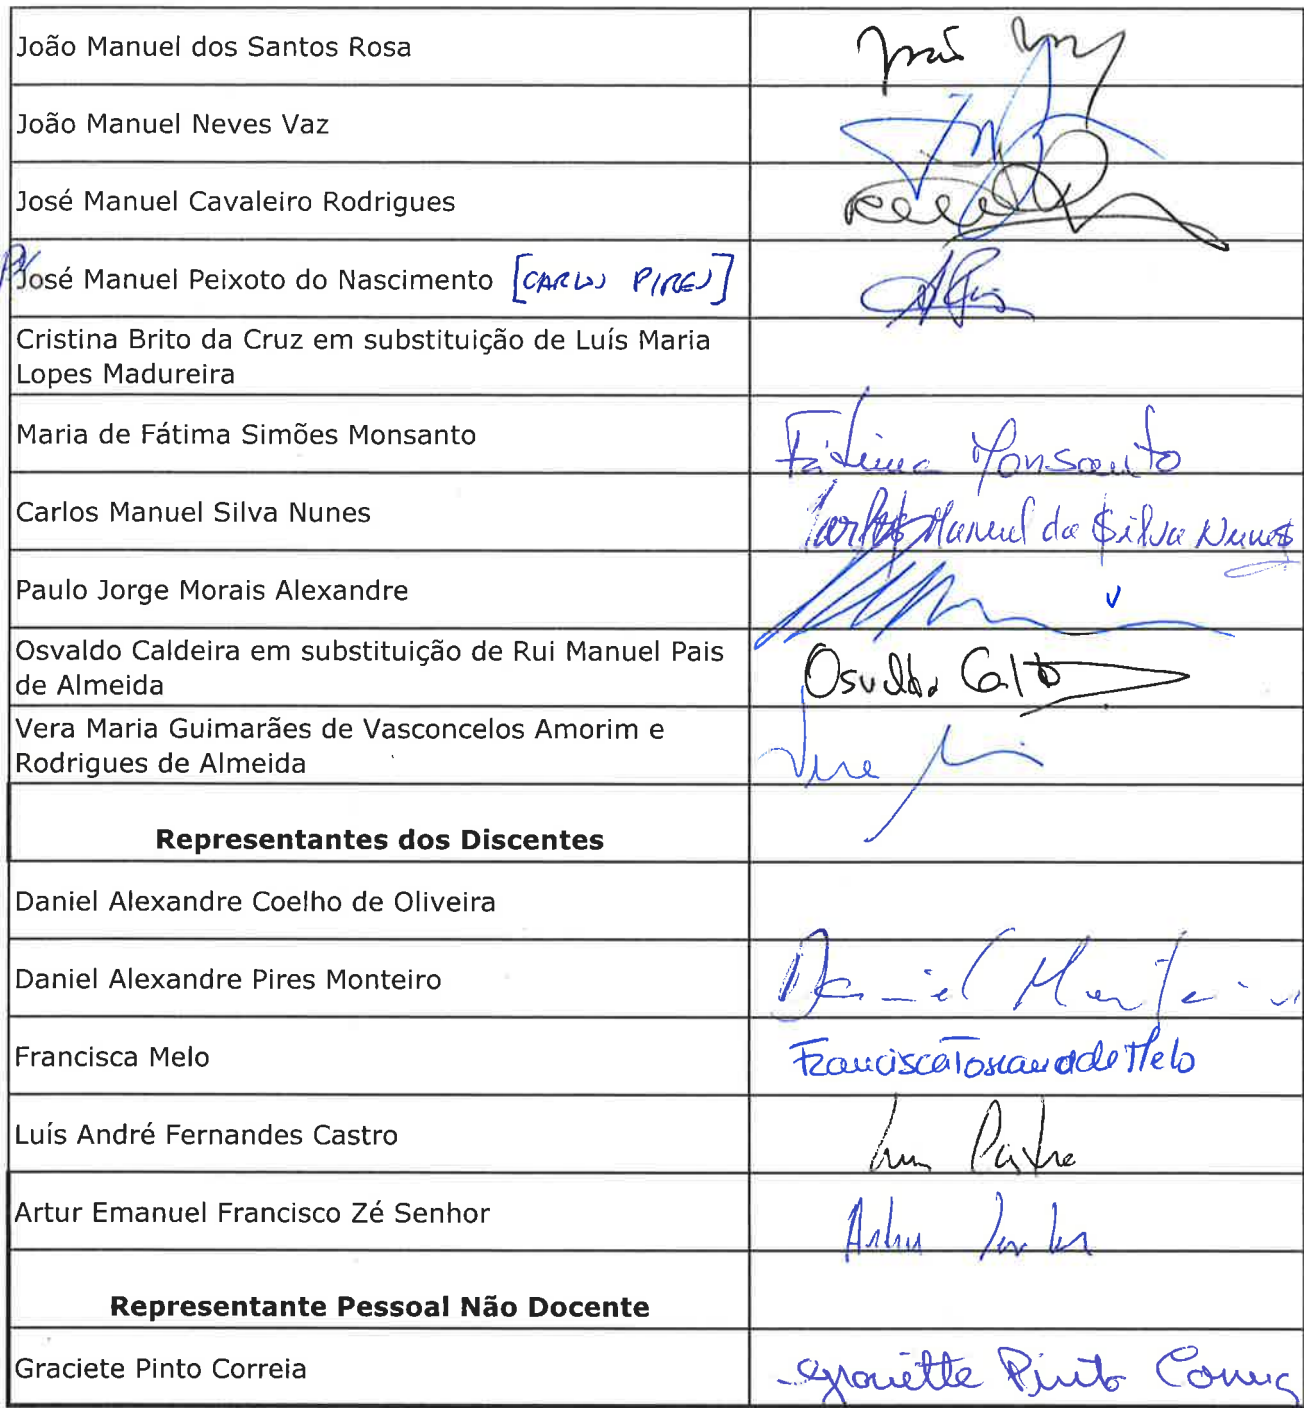 João Manuel dos Santos Rosa
João Manuel Neves Vaz
José Manuel Cavaleiro Rodrigues
José Manuel Peixoto do Nascimento [CARLOS PIRES]
Cristina Brito da Cruz em substituição de Luís Maria
Lopes Madureira
Maria de Fátima Simões Monsanto Fátima Monsanto
Carlos Manuel Silva Nunes Carlos Manuel da Silva Nunes
Paulo Jorge Morais Alexandre
Osvaldo Caldeira em substituição de Rui Manuel Pais Osvaldo
de Almeida
Vera Maria Guimarães de Vasconcelos Amorim e Vera
Rodrigues de Almeida
Representantes dos Discentes
Daniel Alexandre Coelho de Oliveira
Daniel Alexandre Pires Monteiro Daniel Monteiro
Francisca Melo Francisca Toscano de Melo
Luís André Fernandes Castro
Artur Emanuel Francisco Zé Senhor Artur
Representante Pessoal Não Docente
Graciete Pinto Correia Graciette Pinto Correia